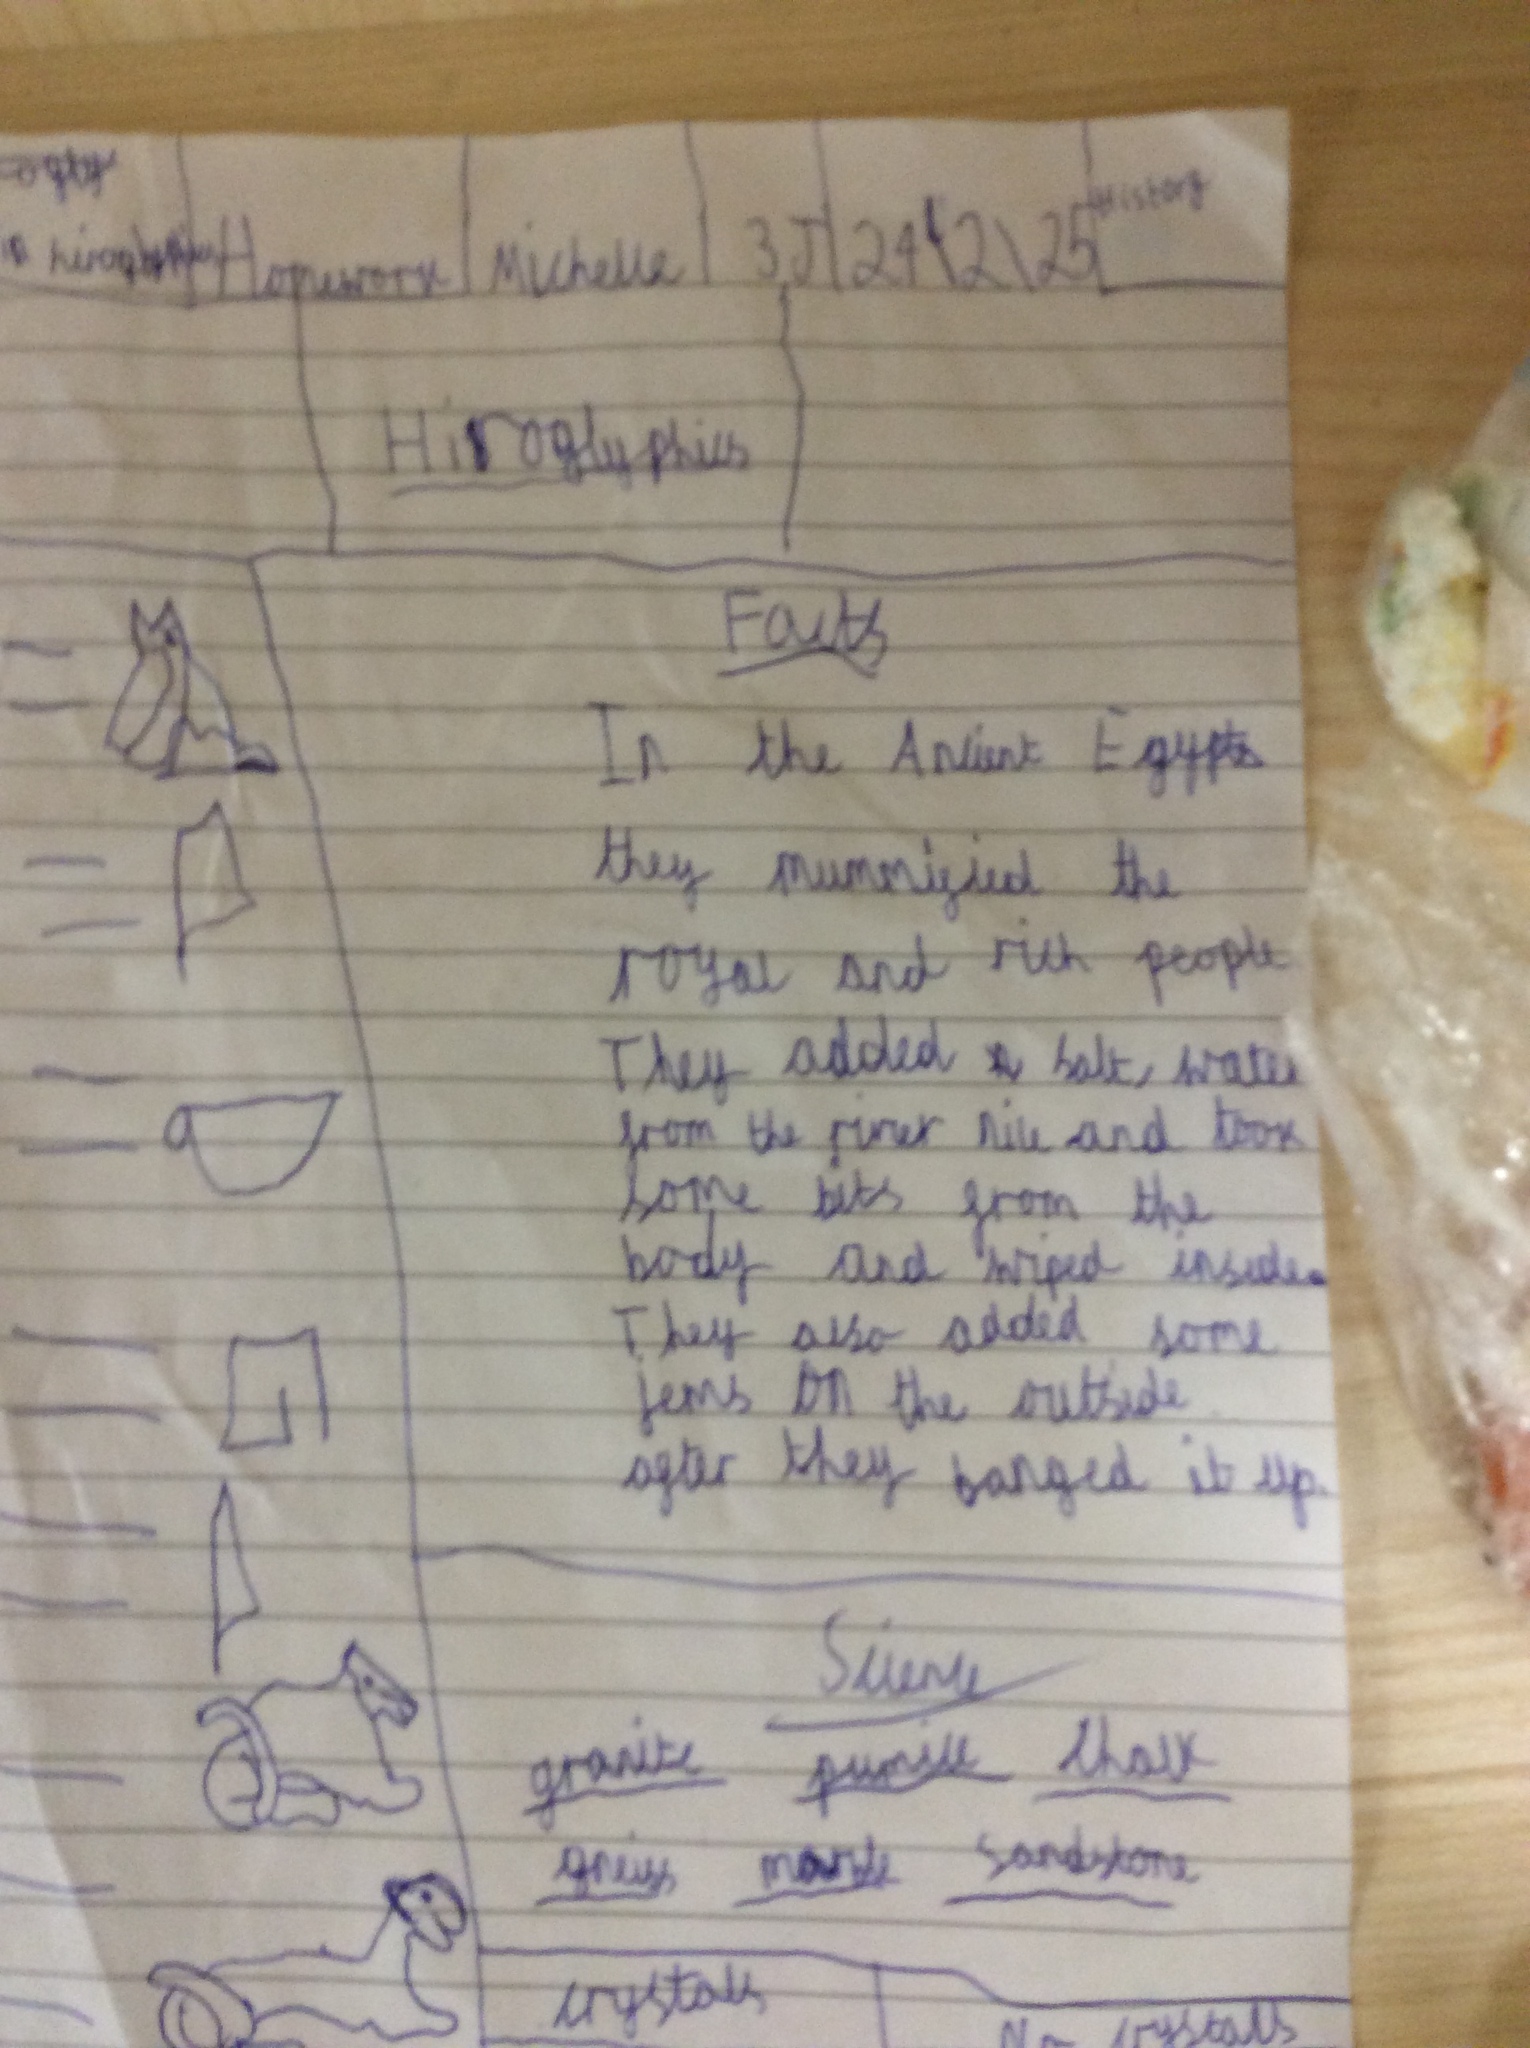 Homework Michelle 3J 24\2\25 History
Hiroglyphics
Facts
In the Ancient Egypts
they mummified the
royal and rich people
They added salt, water
from the river Nile and took
some bits from the
body and wiped inside.
They also added some
jems on the outside
after they banged it up.
Science
granite pumice chalk
gneiss marble sandstone
crystals
No crystals